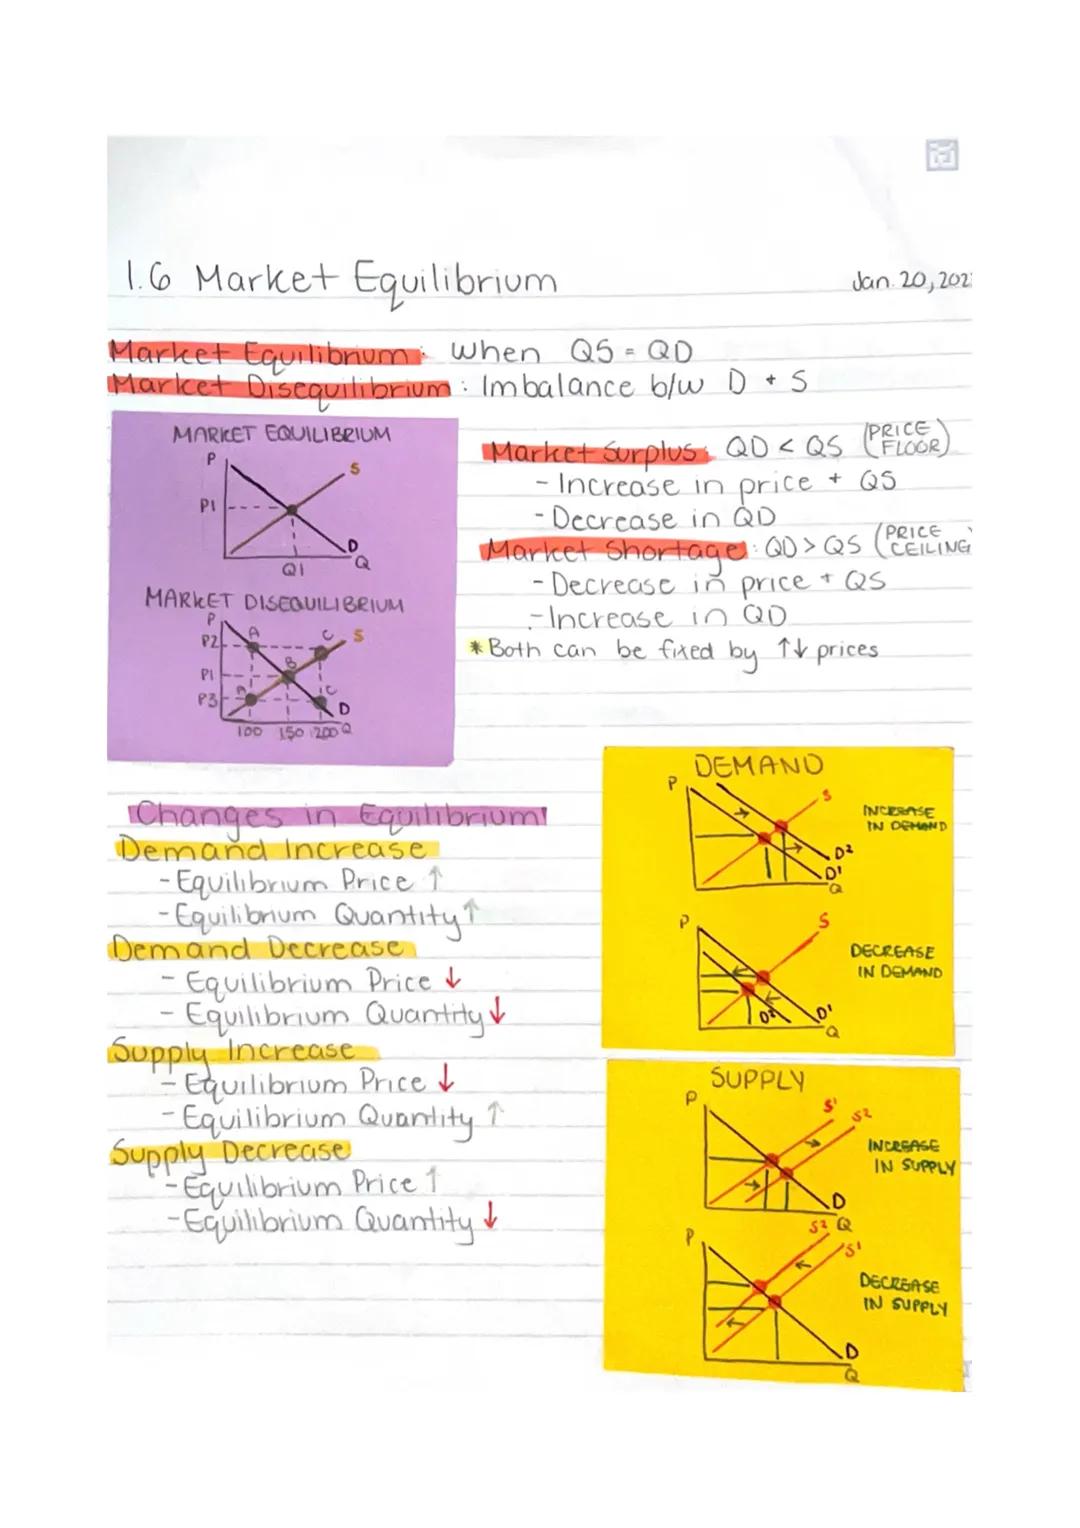 1.6 Market Equilibrium
Jan. 20, 202
Market Equilibrium: When QS = QD
Market Disequilibrium: Imbalance b/w D + S
MARKET EQUILIBRIUM
P
S
P1
D
Q1
Q
MARKET DISEQUILIBRIUM
P
P2
A
C
S
P1
B
P3
A
C
D
100 150 200 Q
Market Surplus: QD < QS (PRICE FLOOR)
- Increase in price + QS
- Decrease in QD
Market Shortage: QD > QS (PRICE CEILING
- Decrease in price + QS
- Increase in QD
* Both can be fixed by ↑↓ prices
Changes in Equilibrium
Demand Increase
- Equilibrium Price ↑
- Equilibrium Quantity ↑
Demand Decrease
- Equilibrium Price ↓
- Equilibrium Quantity ↓
Supply Increase
- Equilibrium Price ↓
- Equilibrium Quantity ↑
Supply Decrease
- Equilibrium Price ↑
- Equilibrium Quantity ↓
DEMAND
P
S
INCREASE
IN DEMAND
D²
D¹
Q
P
S
DECREASE
IN DEMAND
D² D¹
Q
SUPPLY
P
S¹
S²
INCREASE
IN SUPPLY
D
Q
P
S²
S¹
DECREASE
IN SUPPLY
D
Q